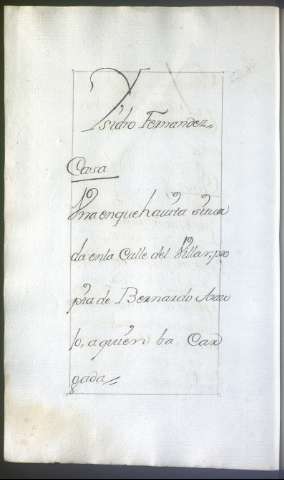 Ysidro Fernandez=
Casa
Vna en que havita situa
da en la Calle del Villar, pro
pria de Bernardo Arau
jo, a quien ba Car
gada=